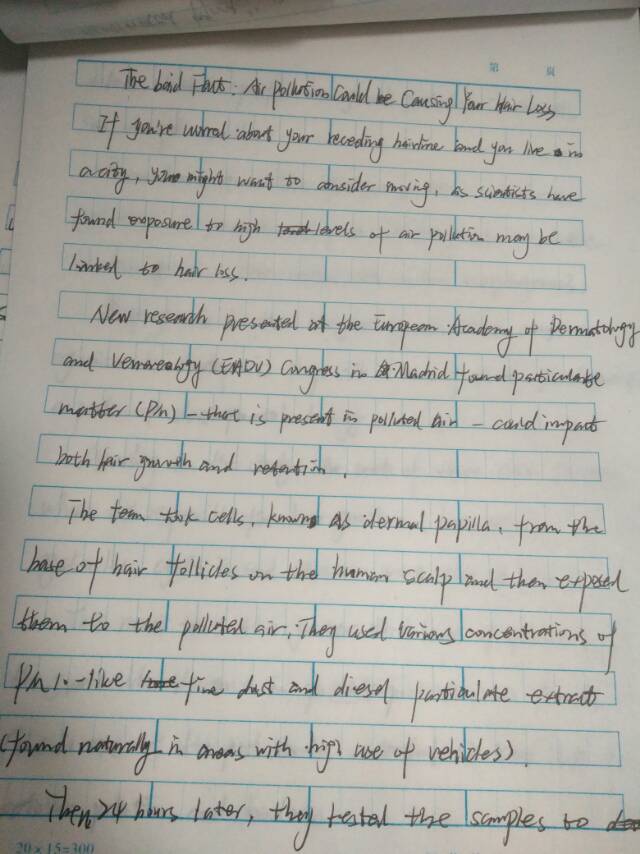 第 页
The bald Fact: Air pollution Could be Causing Your Hair Loss
If you're worried about your receding hairline and you live in
a city, you might want to consider moving, as scientists have
found exposure to high levels of air pollution may be
linked to hair loss.
New research presented at the European Academy of Dermatology
and Venereology (EADV) Congress in Madrid found particulate
matter (PM) - that is present in polluted air - could impact
both hair growth and retention.
The team took cells, known as dermal papilla, from the
base of hair follicles on the human scalp and then exposed
them to the polluted air. They used various concentrations of
PM 10-like fine dust and diesel particulate extract
(found naturally in areas with high use of vehicles).
Then 24 hours later, they tested the samples to
20×15=300